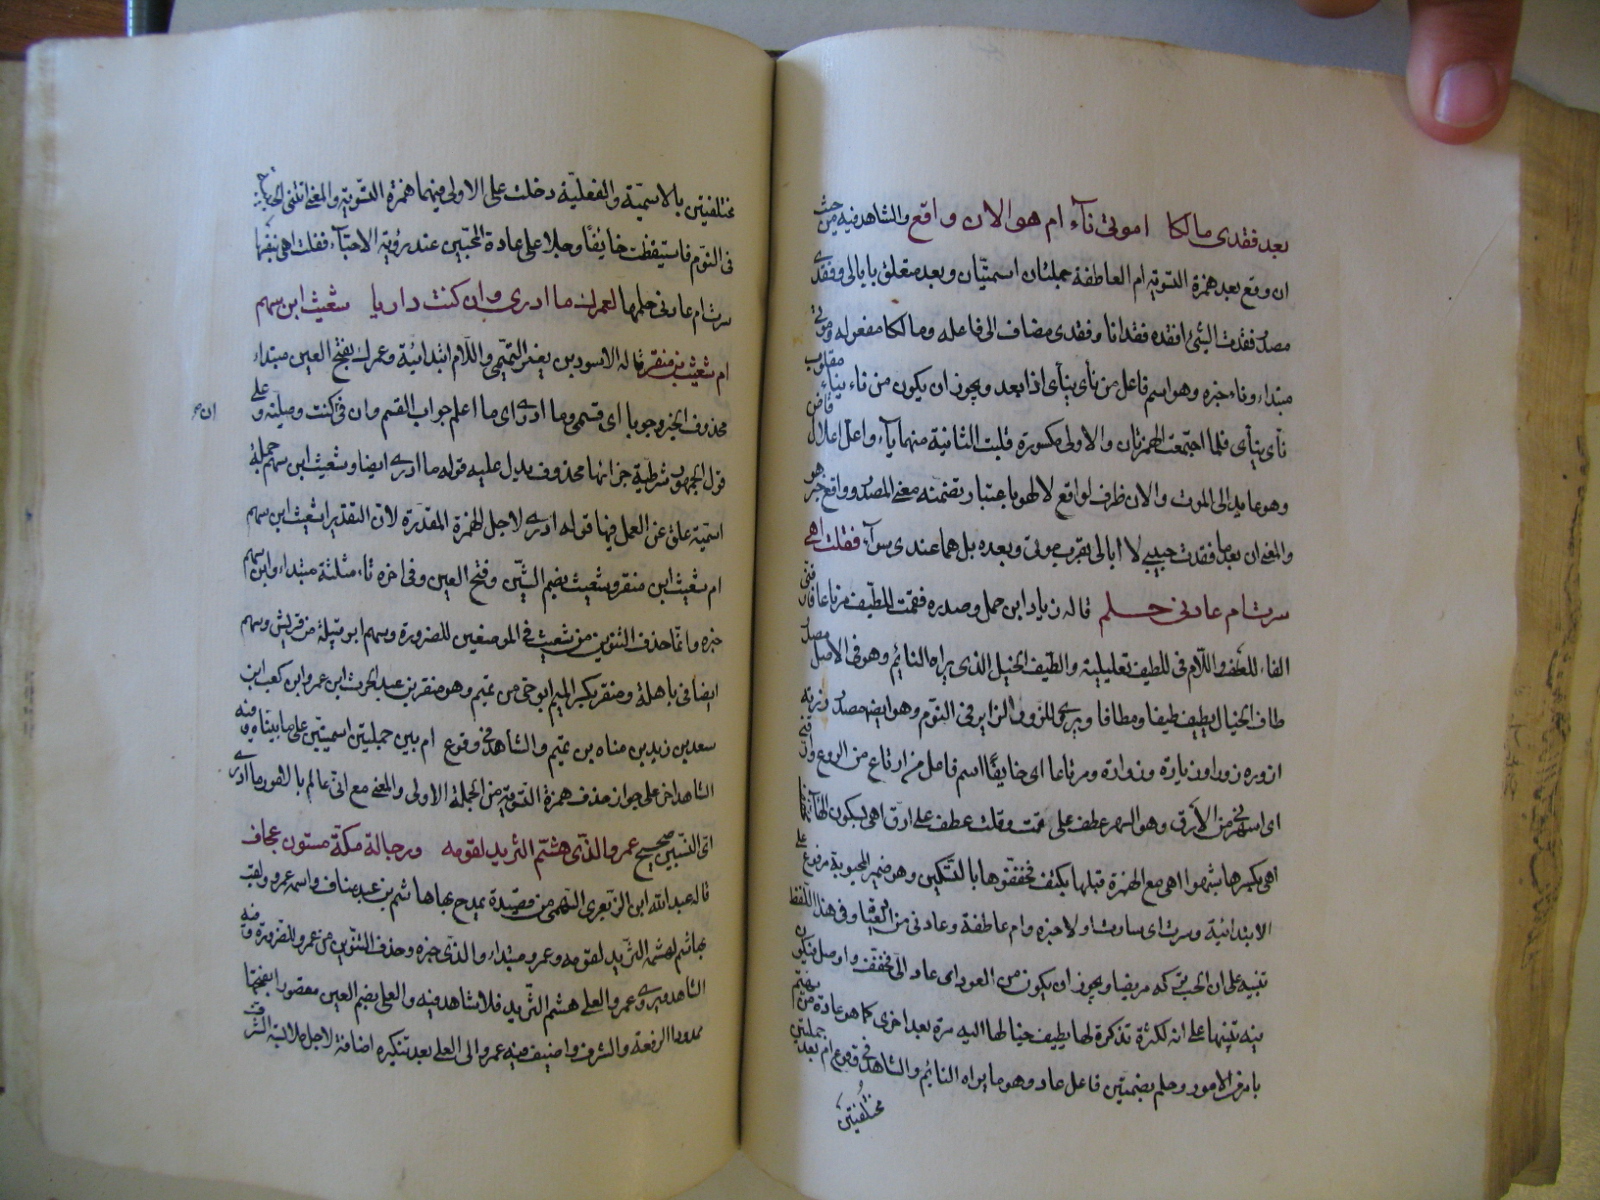 بعد فقدى مالكا اموتى ناء ام هو الان واقع والشاهد فيه من حيث
ان وقع بعد همزة التسوية ام العاطفة جملتان اسميتان وبعد متعلق بابالى وفقدى
مصدر فقدت الشئ افقده فقدانا وفقدى مضاف الى فاعله ومالكا مفعوله وموتى
مبتداء وناء خبره وهو اسم فاعل من نأى ينأى اذا بعد ويجوز ان يكون من ناء ينأء مقلوب
نأى ينأى فلما اجتمعت الهمزتان والاولى مكسورة قلبت الثانية منهما ياء واعل اعلال قاض
وهو عايد الى الموت والان ظرف لواقع لا لهو باعتبار تضمنه معنى المصدر وواقع خبر هو
والمعنى ان بعد ما فقدت حبيبى لا ابالى بقرب موتى وبعده بل هما عندى سواء فقلت اهى
سرت ام عادنى حلم قاله زياد ابن حمل وصدره فقمت للطيف مرتاعا فارقنى
الفاء للعطف واللام فى للطيف تعليلية والطيف الخيال الذى يراه النائم وهو فى الاصل مصدر
طاف الخيال يطيف طيفا ومطافا ويروى للزور الزاير فى النوم وهو ايضا مصدر زرته
ازوره زورا وزيارة وزوارة ومرتاعا اى خايفا اسم فاعل من ارتاع من الروع وارقنى
اى اسهرنى من الأرق وهو السهر عطف على قمت وقلت عطف على ارق اهى بسكون الهاء
اهى بكسرها شبهوا اهى مع الهمزة قبلها بكتف فخففوها بالتسكين وهو ضمير المحبوبة مرفوع على
الابتدائية وسرت اى سارت اولا خبره وام عاطفة وعادنى من العيادة وفى هذا اللفظ
تنبيه على ان الحب تركه مريضا ويجوز ان يكون من العود اى عاد الى فخفف واوصل فيكون
فيه تنبيها على انه لكثرة تذكرة لها يطيف خيالها اليه مرة بعد اخرى كما هو عادة من يهتم
بامر من الامور وحلم بضمتين فاعل عاد وهو ما يراه النائم والشاهد فى وقوع ام بعد جملتين
مختلفتين
مختلفتين بالاسمية والفعلية دخلت على الاولى منهما همزة التسوية والمعنى اتانى الخيال
فى النوم فاستيقظت خايفا وجلا على عادة المحبين عند رؤية الاحباء فقلت اهى بنفسها
سرت ام عادنى حلمها لعمرك ما ادرى وان كنت داريا شعيث ابن سهم
ام شعيث بن منقر قاله الاسود بن يعفر التميمى واللام ابتدائية وعمرك بفتح العين مبتداء
محذوف الخبر وجوبا اى قسمى وما ادرى اى ما اعلم جواب القسم وان فى كنت وصلية وعلى
ان
قول الجمهور شرطية جزائها محذوف يدل عليه قوله ما ادرى ايضا وشعيث ابن سهم جملة
اسمية علق عن العمل فيها قوله ادرى لاجل الهمزة المقدرة لان التقدير اشعيث ابن سهم
ام شعيث ابن منقر وشعيث بضم الشين وفتح العين وفى اخره ثاء مثلثة مبتداء وابن سهم
خبره وانما حذف التنوين من شعيث فى الموضعين للضرورة وسهم ابو قبيلة من قريش وسهم
ايضا فى باهلة ومنقر بكسر الميم ابو حى من تميم وهو منقر بن عبيد الحرث ابن عمرو ابن كعب ابن
سعد بن زيد بن مناه بن تميم والشاهد فى وقوع ام بين جملتين اسميتين على ما بيناه وفيه
الشاهد اخر على جواز حذف همزة التسوية من الجملة الاولى والمعنى مع انى عالم بالامور ما ادرى
اى النسبين صحيح عمرو الذى هشم الثريد لقومه ورجالة مكة مسنتون عجاف
قاله عبد الله ابن الزبعرى السهمى من قصيدة يمدح بها هاشم بن عبد مناف واسمه عمرو ولقب
بهاشم لهشمه الثريد لقومه وعمرو مبتداء والذى خبره وحذف التنوين من عمرو للضرورة وفيه
الشاهد ويروى عمرو العلى هشم الثريد فلا شاهد فيه والعلى بضم العين مقصورا بفتحها
ممدودا الرفعة والشرف واضيف فيه عمرو الى العلى بعد تنكيره اضافة لاجل ملابسة الشرف